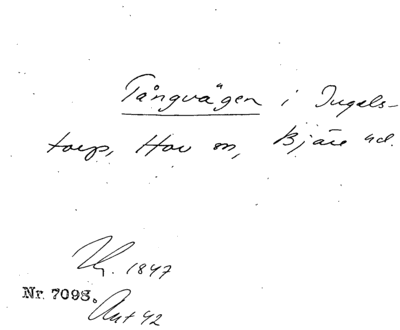 Tångvägen i Ingels-
torp, Hov sn, Bjäre hd.
1847
Nr. 7098.
Ant 42